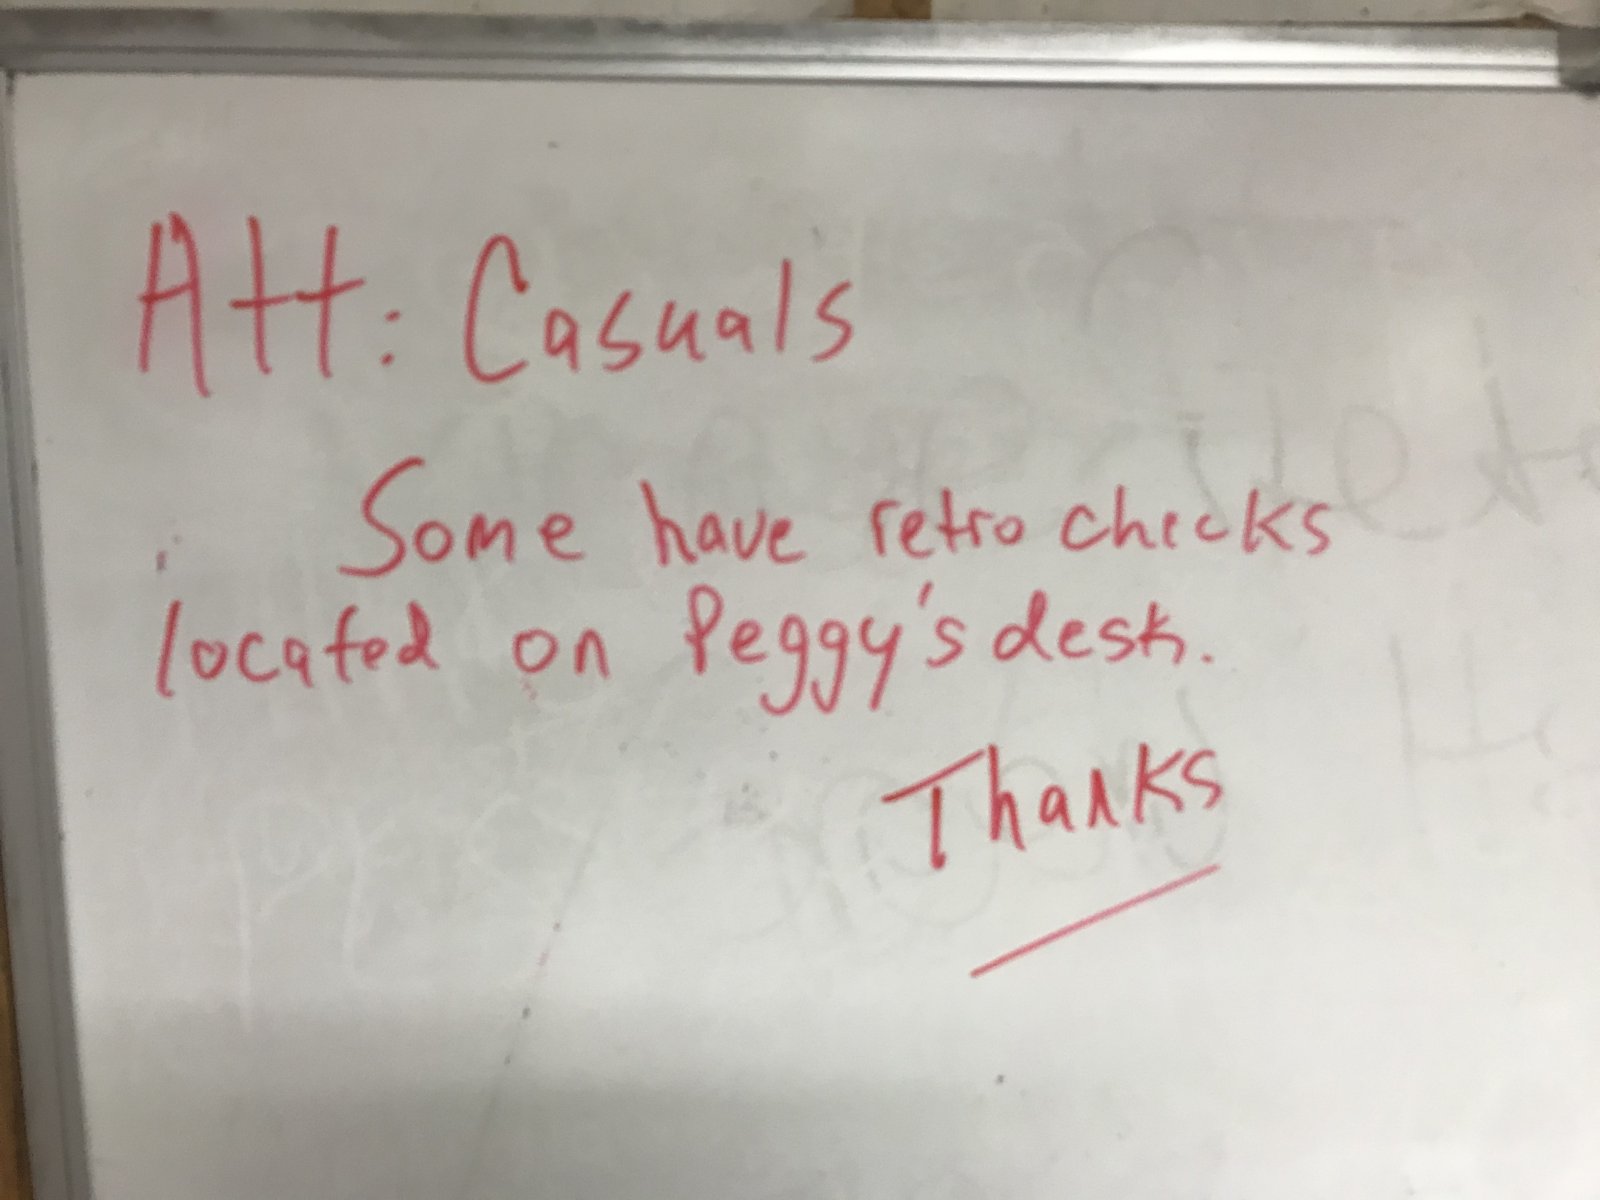 Att: Casuals
Some have retro checks
located on Peggy's desk.
Thanks